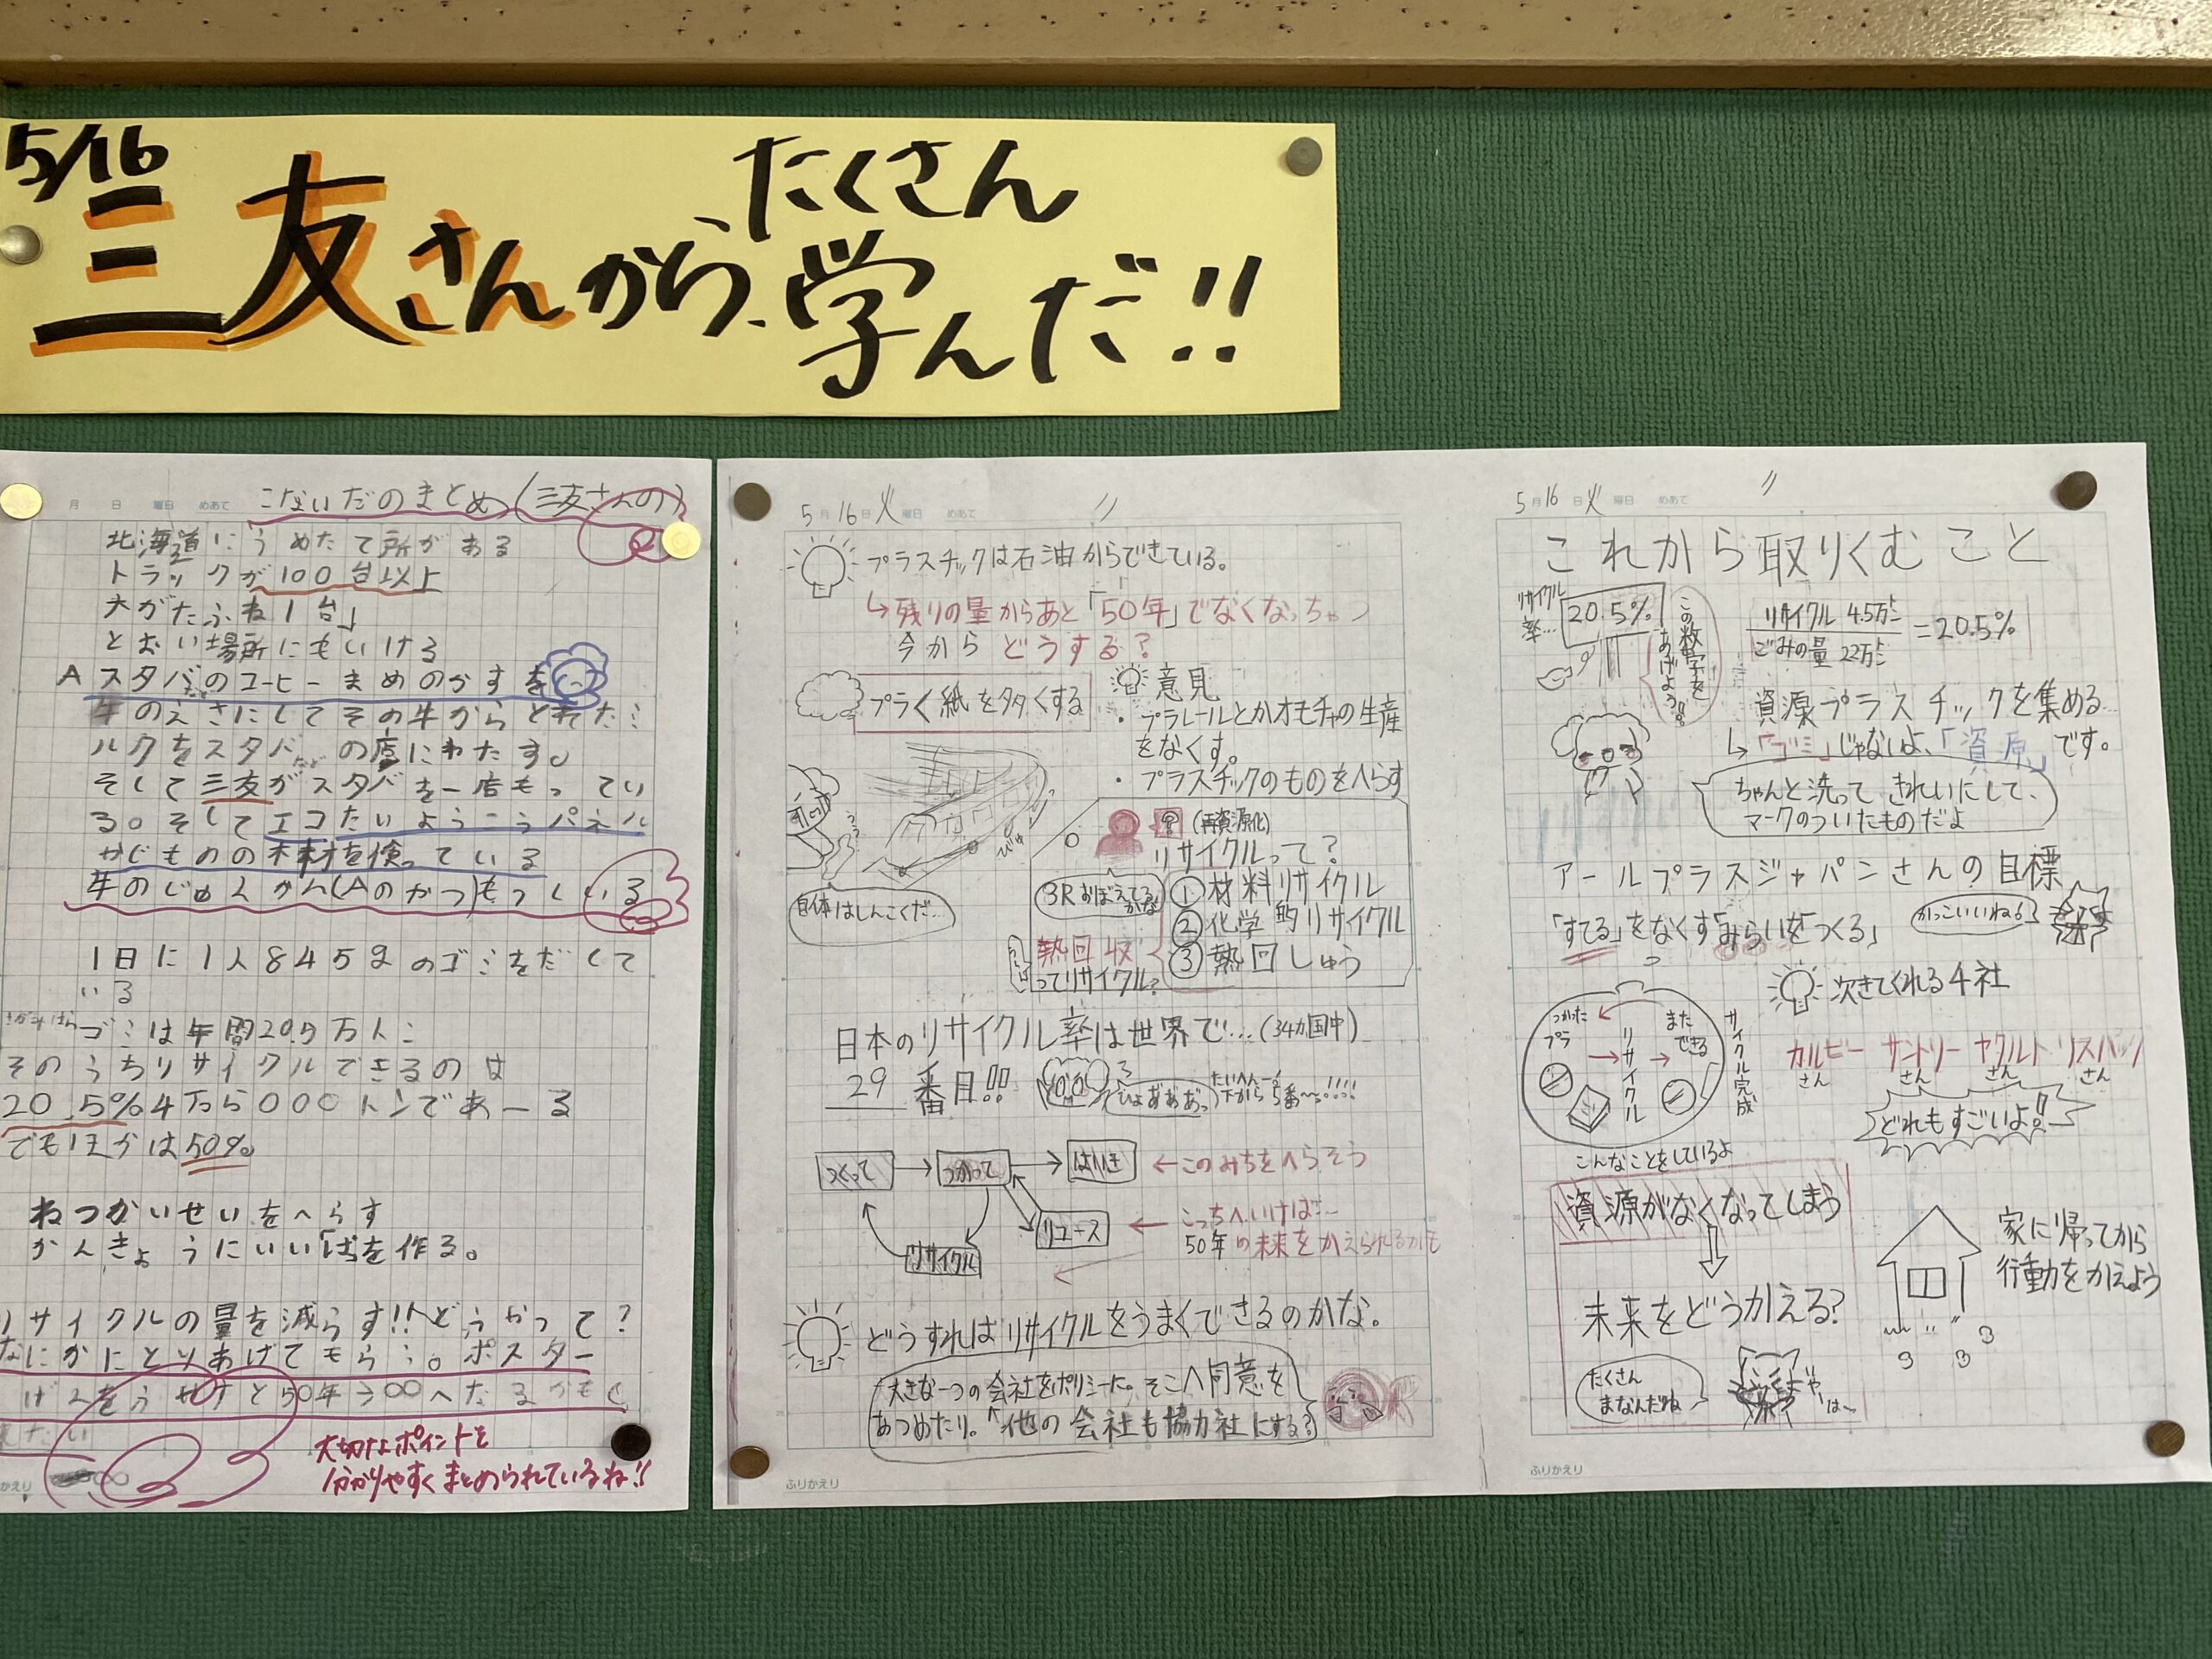 5/16
三友さんから、たくさん
学んだ!!
月 日 曜日 めあて
こないだのまとめ(三友さんの)
北海道にうめたて所がある
トラックが100台以上
大がたふね1台
とおい場所にもいける
Aスタバのコーヒーまめのかすを
牛のえさにしてその牛からとれた
ルクをスタバの店にわたす。
そして三友がスタバを一店もってい
る。そしてエコたいようこうパネル
かじものの木材を使っている
牛のじゅんかん(Aのかつ)もっている
1日に1人845gのゴミをだして
いる
ゴミは年間20.5万
そのうちリサイクルできるのは
20.5%4万5000トンであーる
でもほかは50%。
ねつかいせいをへらす
かんきょうにいいばを作る。
リサイクルの量を減らす!!どうやって?
なにかにとりあげてもらう。ポスター
50年→∞へたるかもく
大切なポイントを
分かりやすくまとめられているね!!
5月16日火曜日 めあて 〃
プラスチックは石油からできている。
↳残りの量からあと「50年」でなくなっちゃう
今からどうする?
プラ<紙を多くする
意見
・プラレールとかオモチャの生産
をなくす。
・プラスチックのものをへらす
自体はしんこくだ…
(再資源化)
リサイクルって?
3Rおぼえてるかな
①材料リサイクル
②化学的リサイクル
③熱回しゅう
熱回収
ってリサイクル?
日本のリサイクル率は世界で…(34か国中)
29番目!!
ひょぉぉぉっ
たいへんー!
下から5番〜!!!!
つくって → つかって → はいき ←このみちをへらそう
リユース ← こっちへいけば…
50年の未来をかえられるかも
リサイクル
どうすればリサイクルをうまくできるのかな。
大きな一つの会社をポリシーに。そこへ同意を
あつめたり。他の会社も協力社にする?
ふりかえり
5月16日火曜日 めあて 〃
これから取りくむこと
リサイクル率…
20.5%
この数字をあげよう!!
リサイクル 4.5万トン
ごみの量 22万トン
=20.5%
資源プラスチックを集める
↳「ゴミ」じゃないよ、「資源」です。
ちゃんと洗ってきれいにして、
マークのついたものだよ
アールプラスジャパンさんの目標
「すてる」をなくす「みらい」を「つくる」
かっこいいね
次きてくれる4社
カルビーさん サントリーさん ヤクルトさん リスパックさん
どれもすごいよ!!
つかったプラ → リサイクル → またできる
サイクル完成
こんなことをしているよ
資源がなくなってしまう
⇩
未来をどうかえる?
家に帰ってから
行動をかえよう
たくさん
まなんだね
ふりかえり